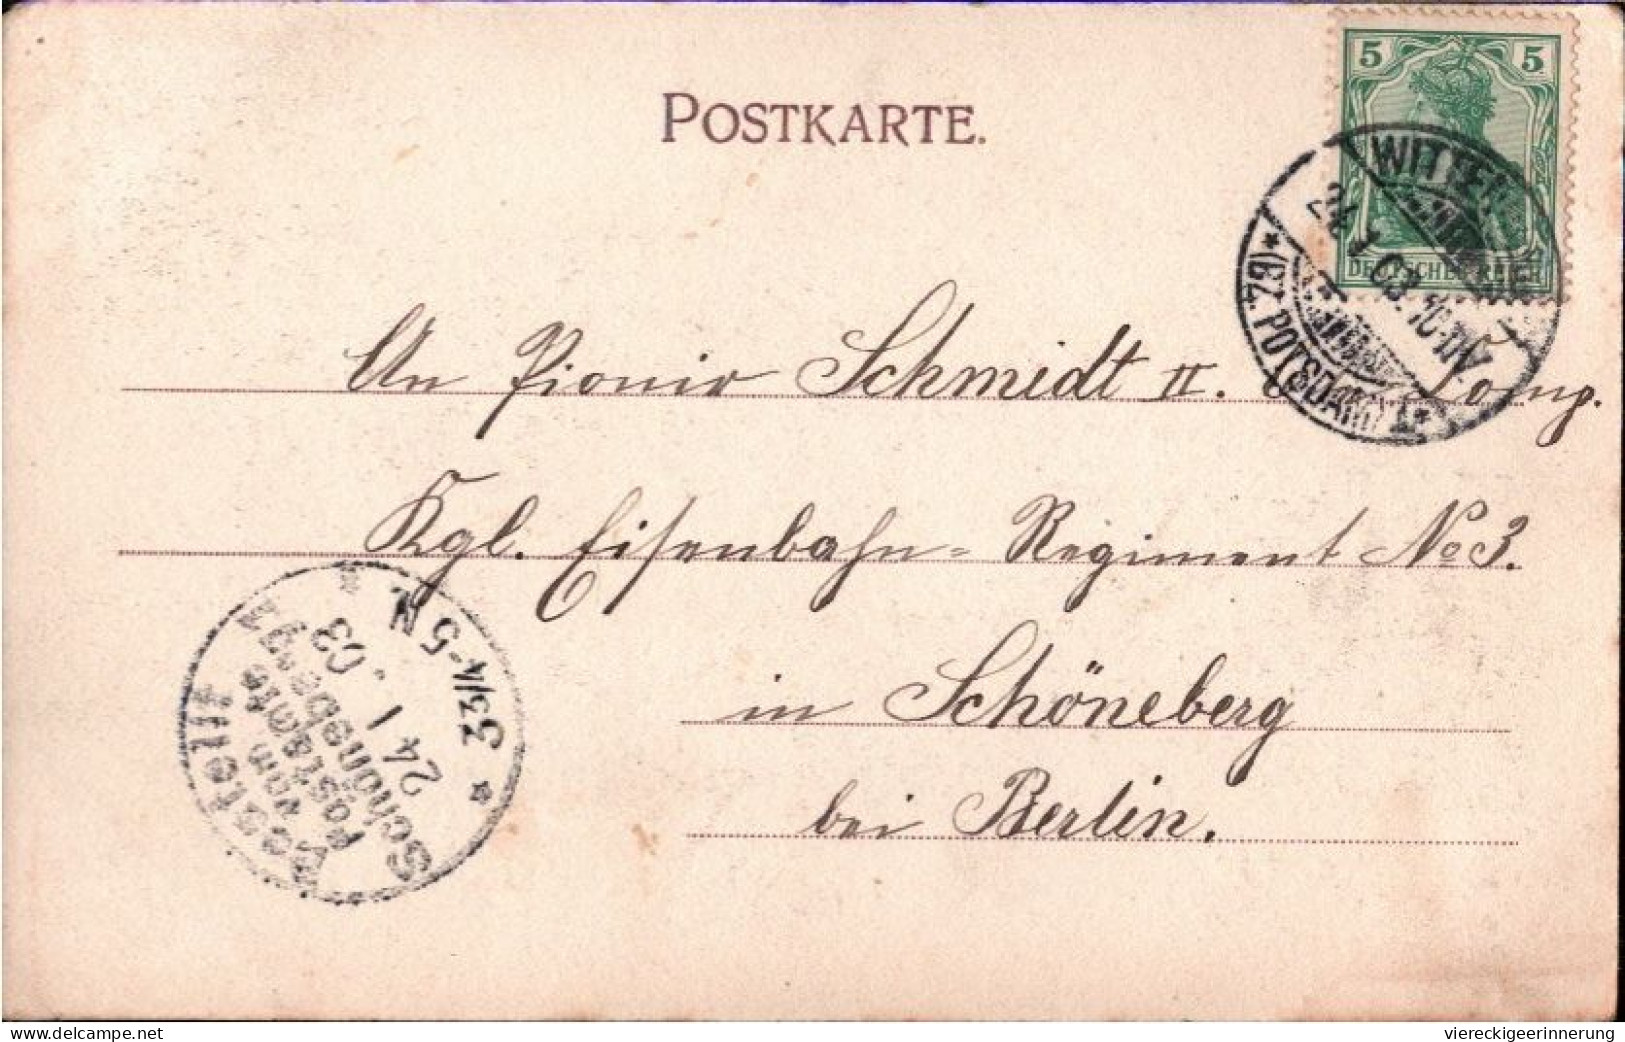 POSTKARTE.
5 5
DEUTSCHES REICH
24 1 03. 10-11V.
*(BZ. POTSDAM)*
An Pionir Schmidt II. Comp.
Kgl. Eisenbahn-Regiment No 3.
in Schöneberg
bei Berlin.
Bestellt
vom
Postamte
Schöneberg 1
24 1. 03
* 3¾-5 N. *
delcampe.net
viereckigeerinnerung